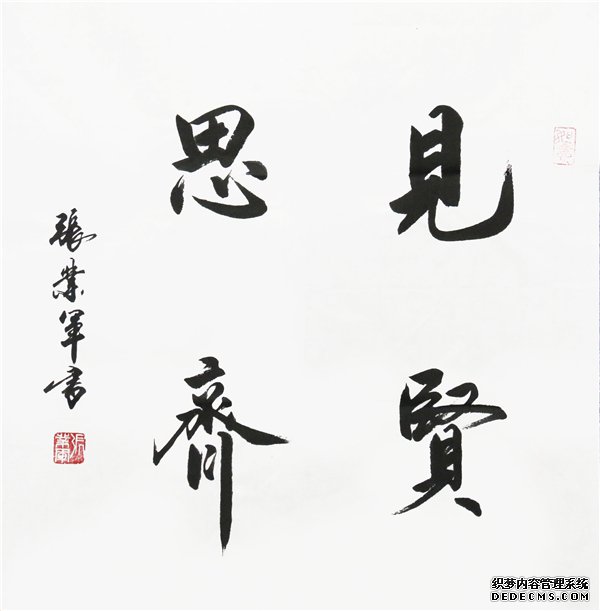 見賢
思齊
張業軍书
織梦内容管理系统
DEDECMS.COM